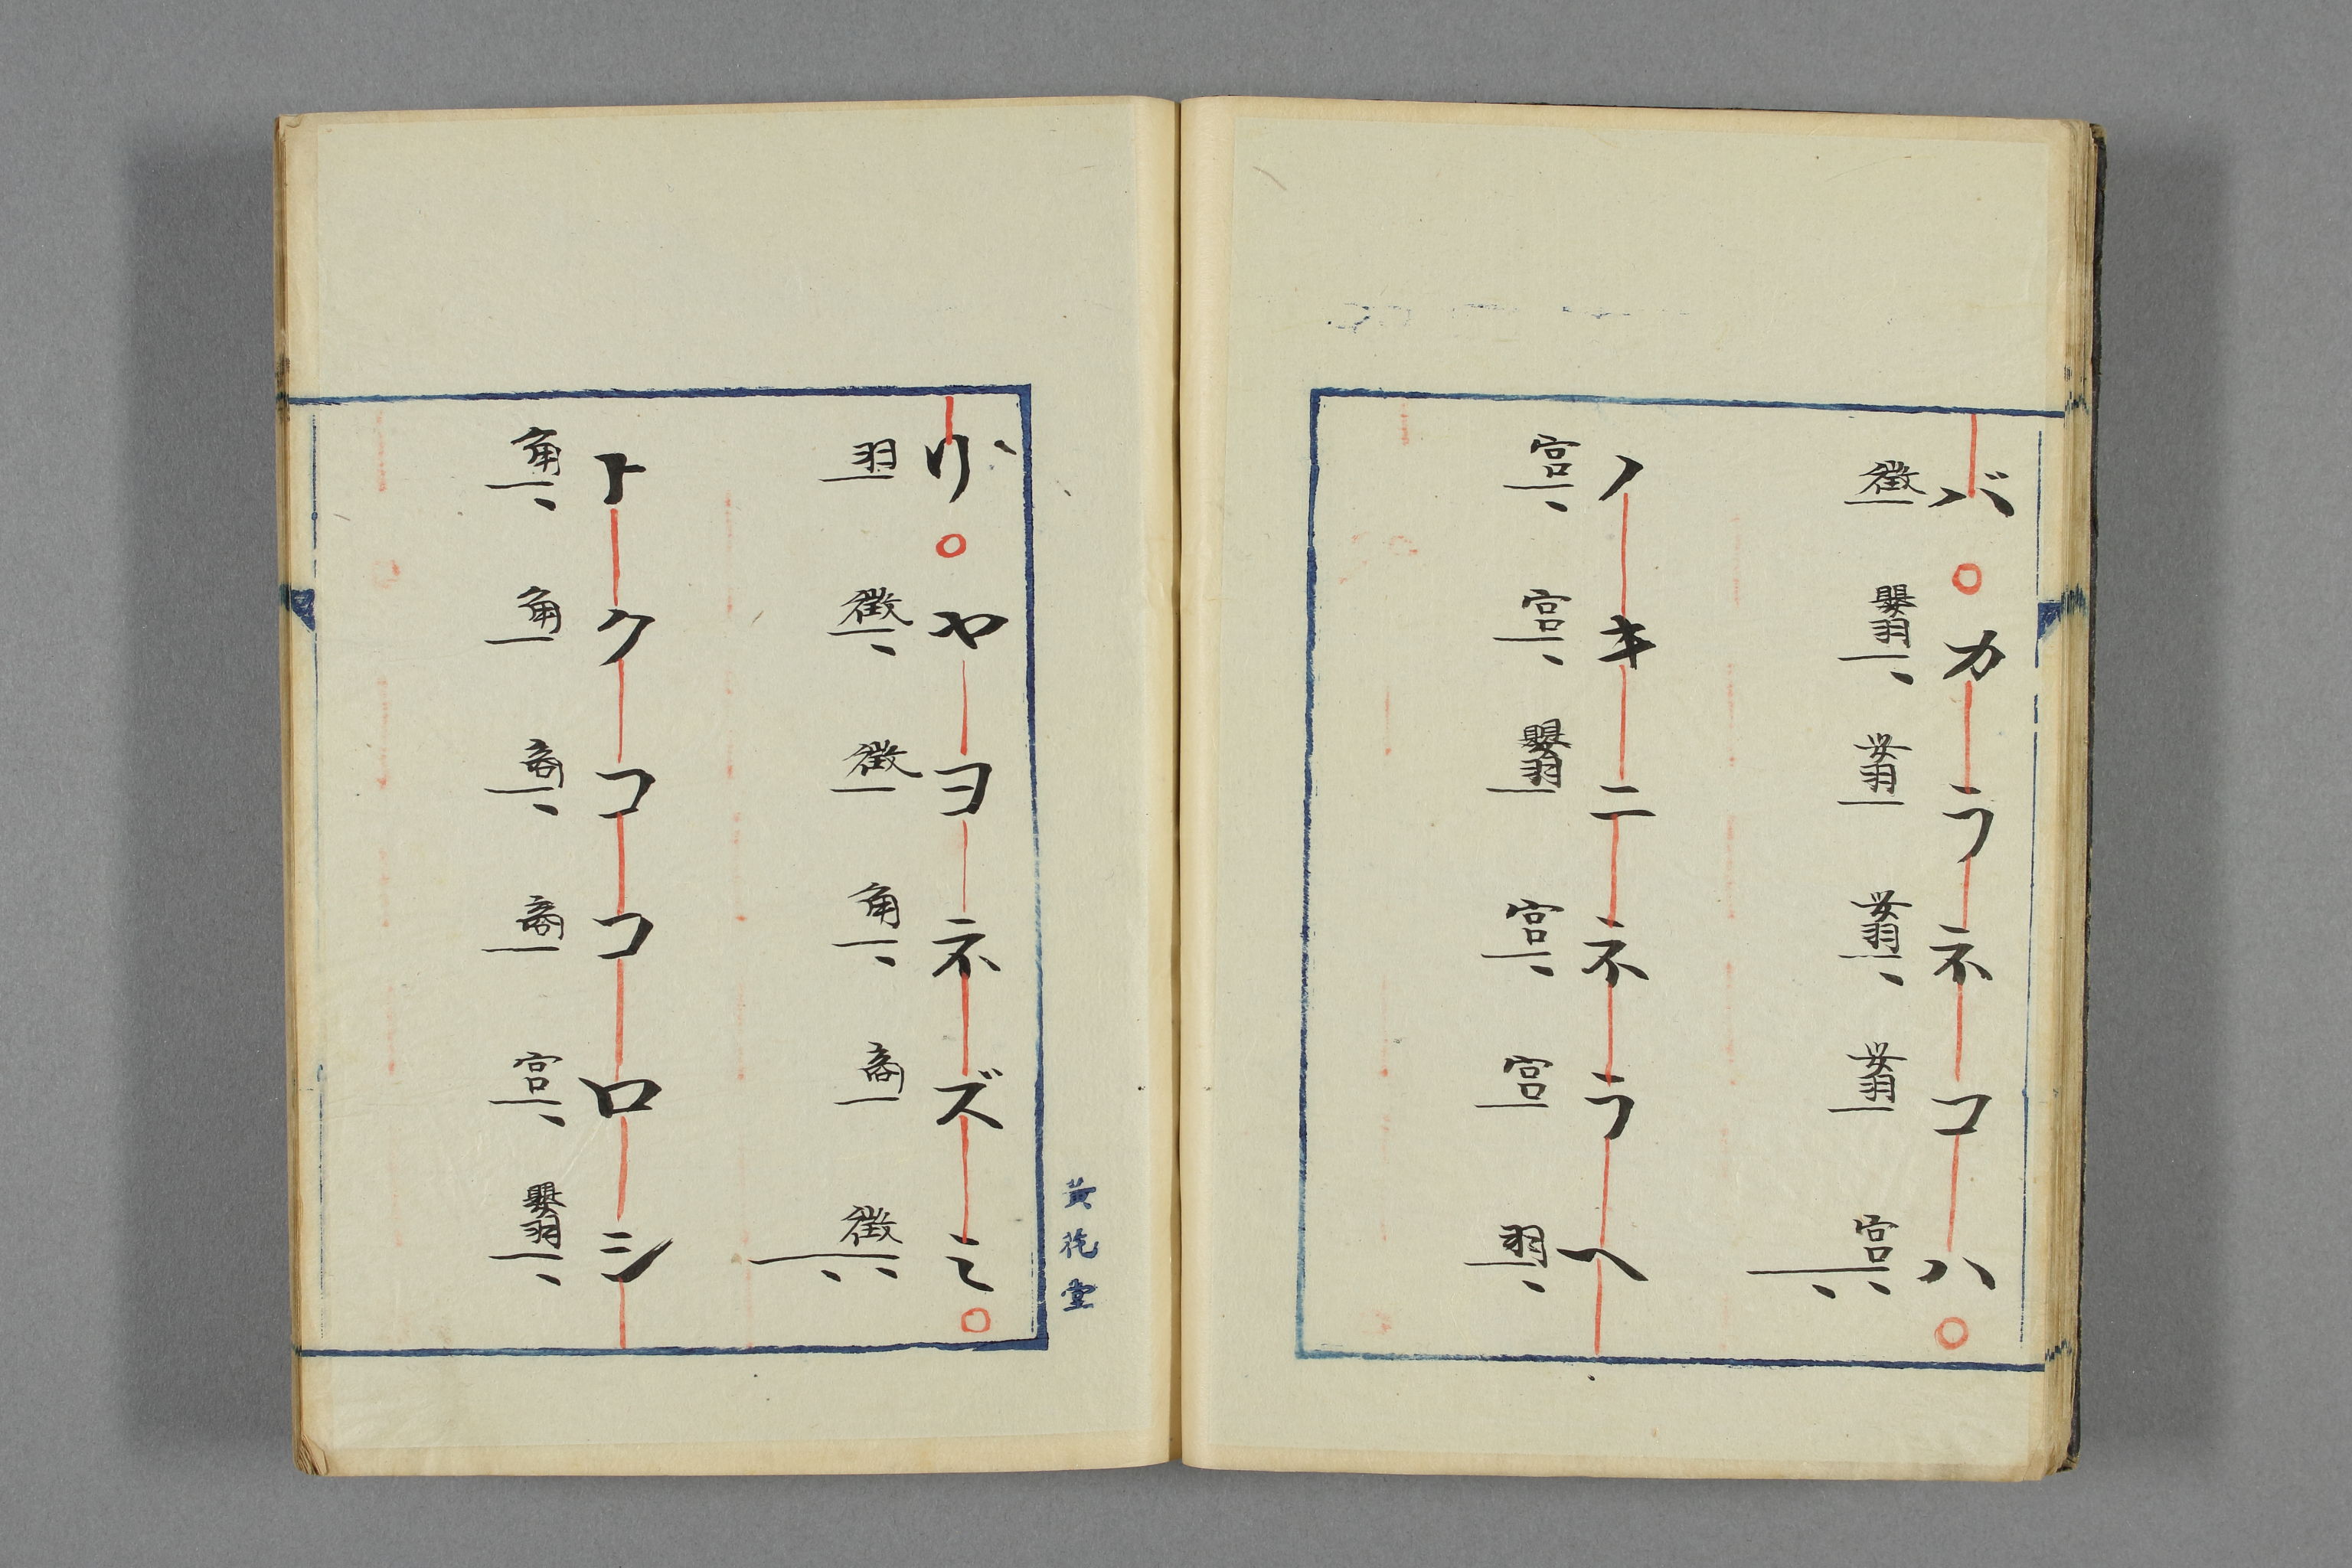 バ○カラネコハ○
徴 嬰羽 嬰羽 嬰羽 嬰羽 宮
ノキニネラヘ
宮 宮 嬰羽 宮 宮 羽
黄 堂
リ○ヤヨネズミ○
羽 徴 徴 角 商 徴
トクココロシ
角 角 商 商 宮 嬰羽